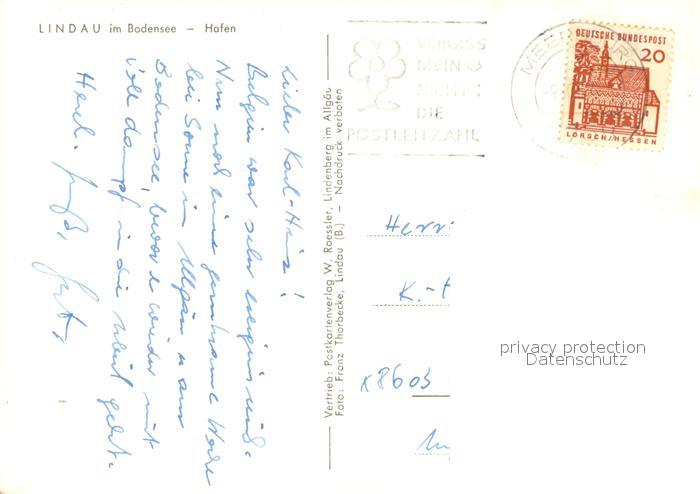 LINDAU im Bodensee – Hafen
VERGISS
MEIN
NICHT:
DIE
POSTLEITZAHL
MEERSBURG
DEUTSCHE BUNDESPOST
20
LORSCH/HESSEN
Lieber Karl-Heinz!
Belgien war sehr
Nun noch eine Woche
bei Sonne im Allgäu u. am
Bodensee, bevor es wieder mit
Volldampf in die Arbeit geht.
Herzl. Gruß,
Vertrieb: Postkartenverlag W. Roessler, Lindenberg im Allgäu
Foto: Franz Thorbecke, Lindau (B.) – Nachdruck verboten
Herr
K.-
x8603
privacy protection
Datenschutz